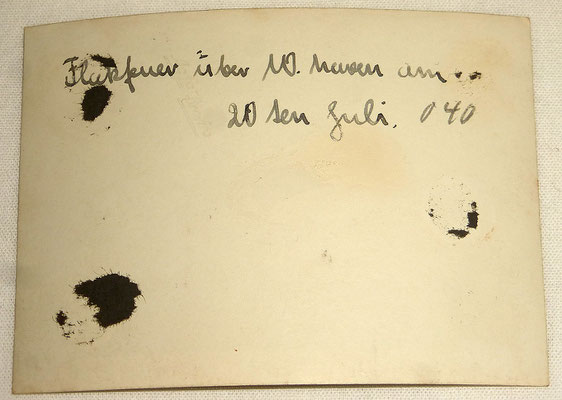 Flakfeuer über W. haven am
20 ten Juli. 040